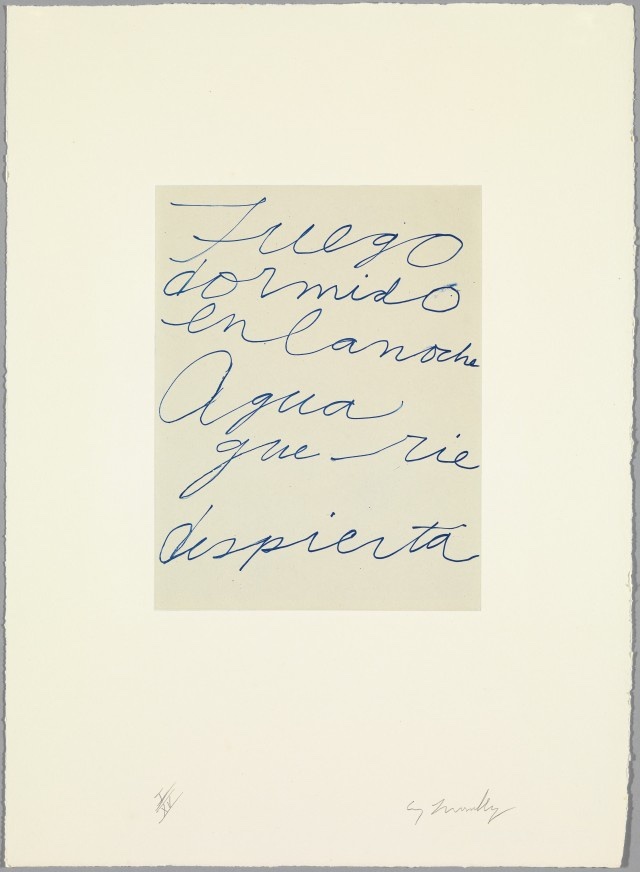 Fuego
dormido
en la noche
Agua
que rie
despierta
Cy Twombly